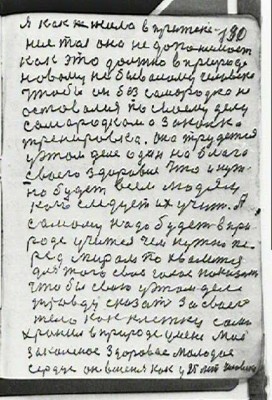 180
Я как нежива в притяже-
ния та она не допонимает
как это должно в природе
новому небывалому человеку
чтобы он без самородка не
оставался по своему делу
самородком а закалка
тренировка. Она трудится
у этом деле один на благо
своего здоровья что и нуж-
но будет всем людям
кого следует их учит. А
самому надо будет в при-
роде учится чем нужно пе-
ред миром похвалится
для того свое такое показать
чтобы свою у этом деле
правду сказать за свое
тело как клетку само
хранил в природе умело мое
закалное здоровае молодое
сердце он именя как у 25 лет человека